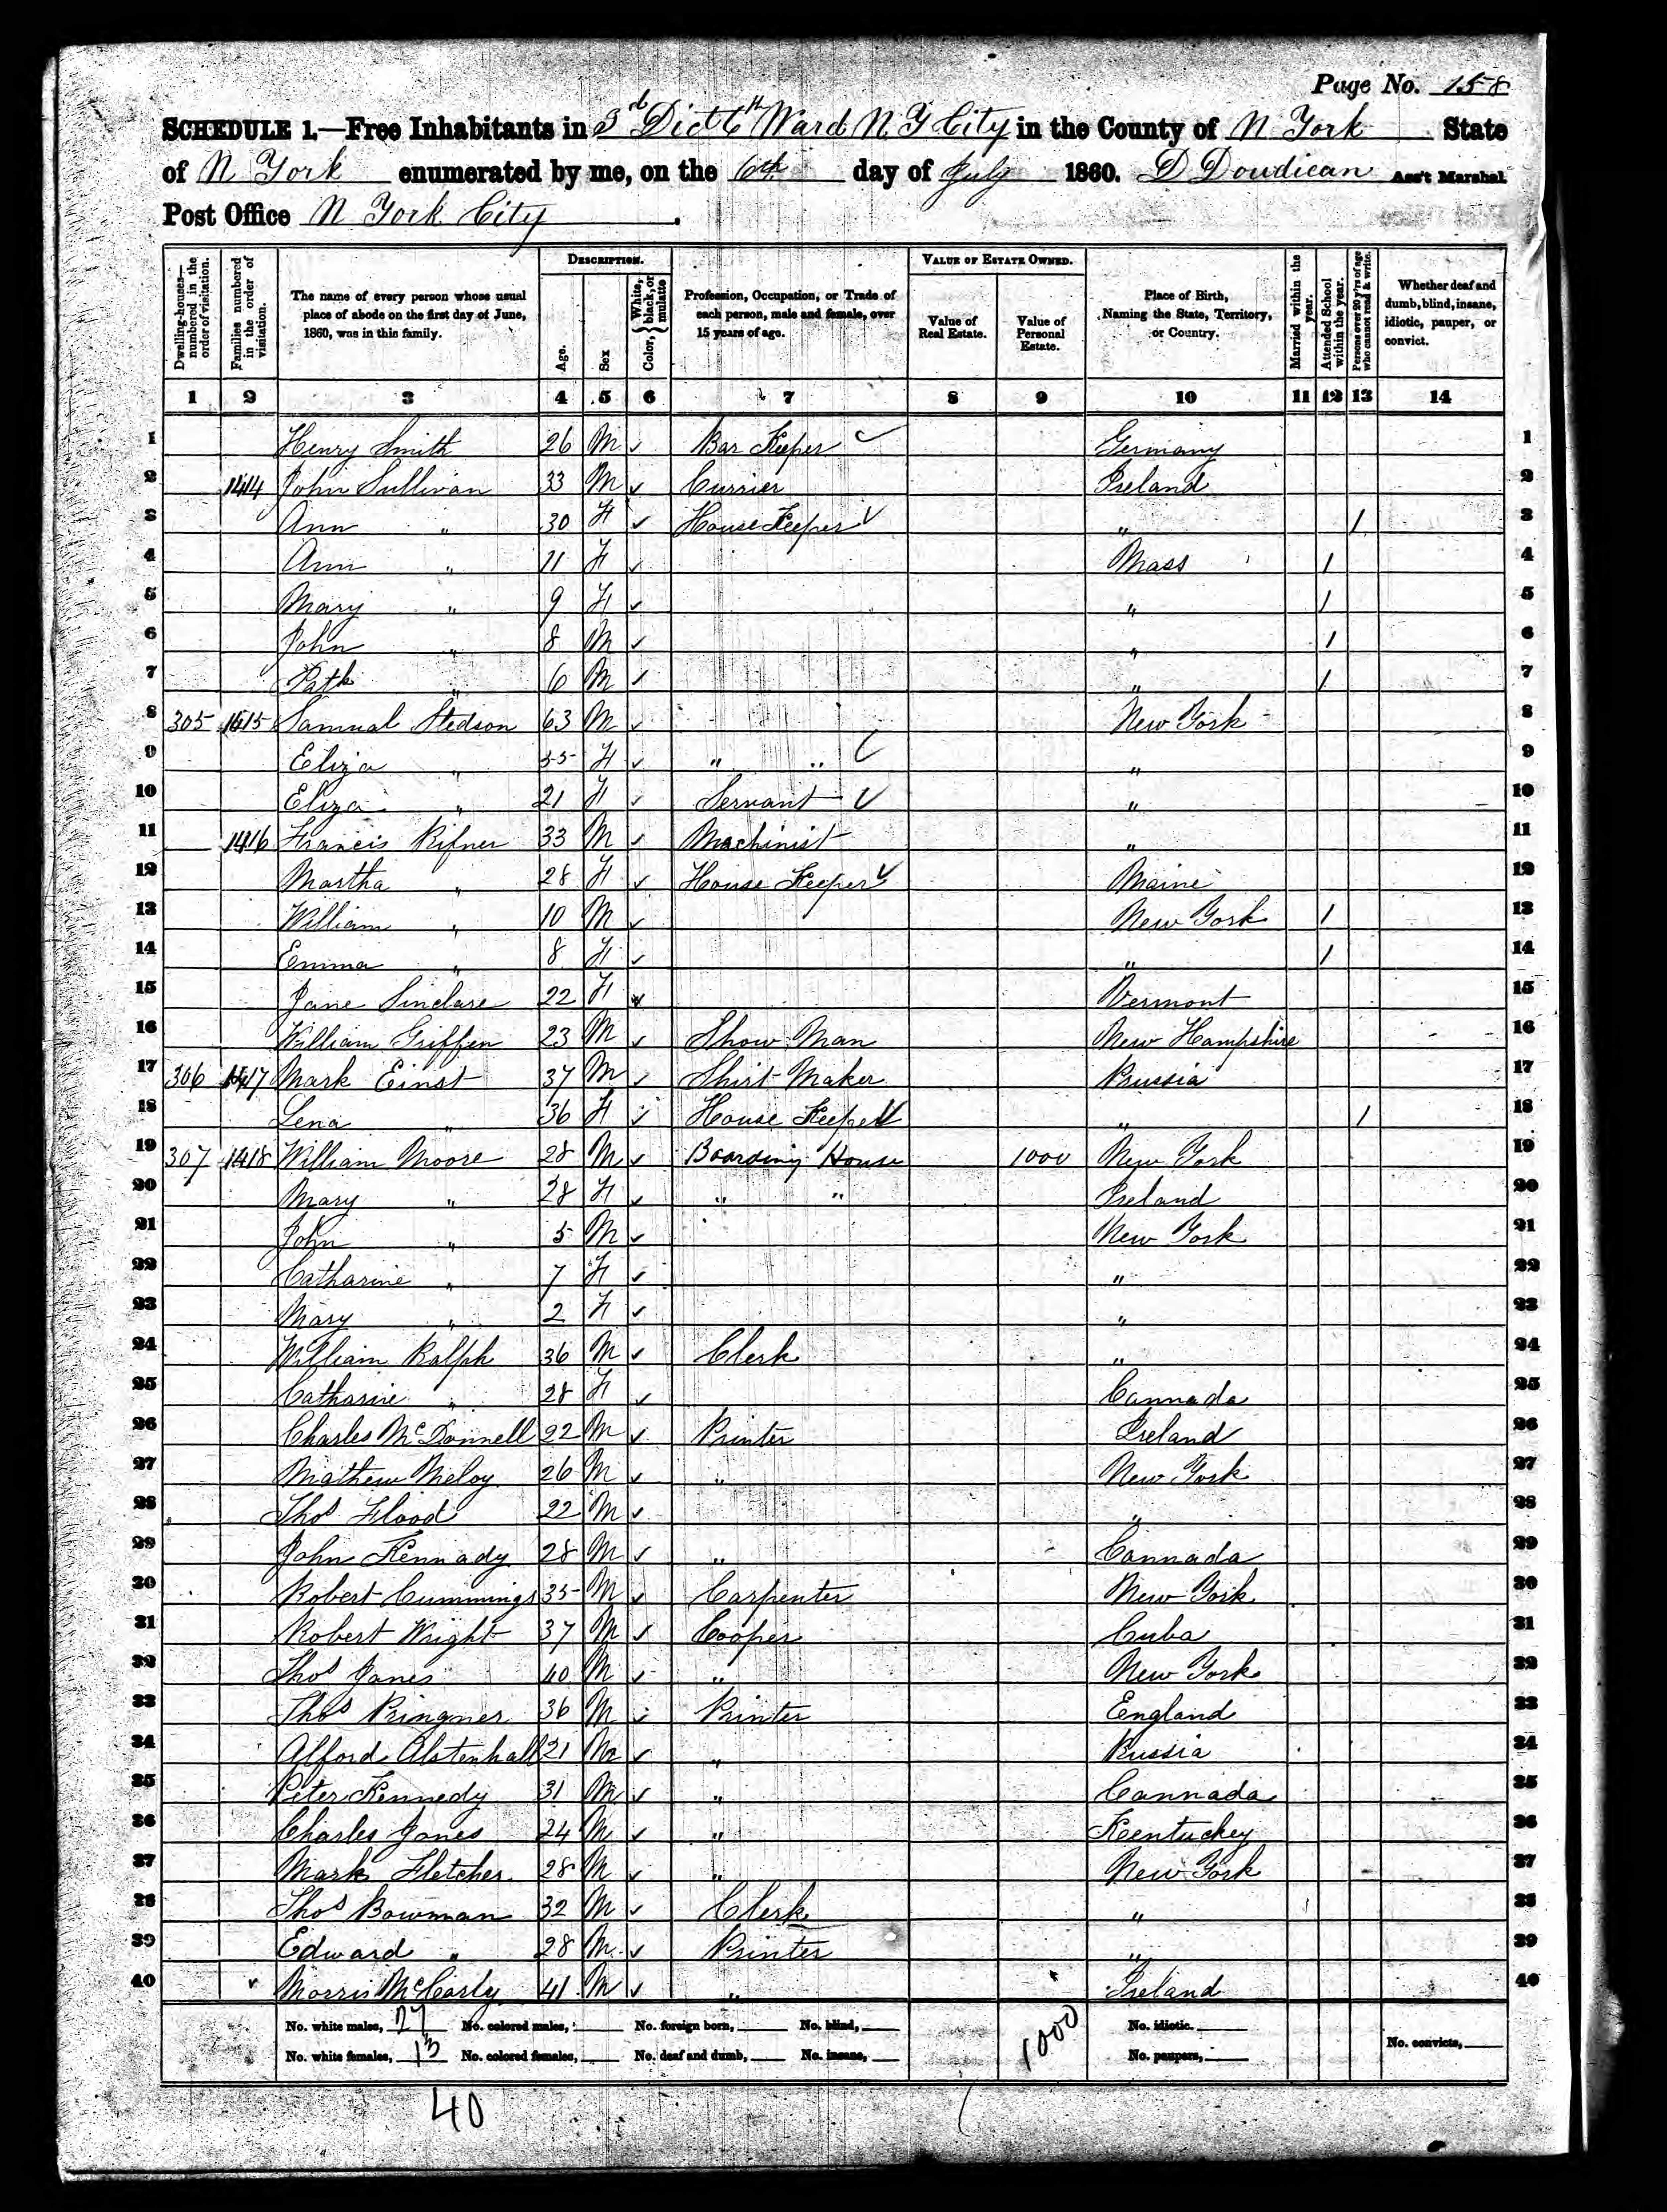 Page No. 158
SCHEDULE 1.—Free Inhabitants in 3d Dist 6th Ward N Y City in the County of N York State
of N York enumerated by me, on the 6th day of July 1860. D Doudican Ass't Marshal
Post Office N York City.
Dwelling-houses—numbered in the order of visitation. Families numbered in the order of visitation. The name of every person whose usual place of abode on the first day of June, 1860, was in this family. DESCRIPTION. Age. Sex Color, White, black, or mulatto Profession, Occupation, or Trade of each person, male and female, over 15 years of age. VALUE OF ESTATE OWNED. Value of Real Estate. Value of Personal Estate. Place of Birth, Naming the State, Territory, or Country. Married within the year. Attended School within the year. Persons over 20 y'rs of age who cannot read & write. Whether deaf and dumb, blind, insane, idiotic, pauper, or convict.
1 2 3 4 5 6 7 8 9 10 11 12 13 14
1 Henry Smith 26 M ✓ Bar Keeper ✓ Germany 1
2 1414 John Sullivan 33 M ✓ Currier Ireland 2
3 Ann " 30 F ✓ House Keeper ✓ " / 3
4 Ann " 11 F ✓ Mass / 4
5 Mary " 9 F ✓ " / 5
6 John " 8 M ✓ " / 6
7 Patk " 6 M ✓ " / 7
8 305 1415 Samual Stedson 63 M ✓ New York 8
9 Eliza " 55 F ✓ " " ✓ " 9
10 Eliza " 21 F ✓ Servant ✓ " 10
11 1416 Francis Rifner 33 M ✓ Machinist " 11
12 Martha " 28 F ✓ House Keeper ✓ Maine 12
13 William " 10 M ✓ New York / 13
14 Emma " 8 F ✓ " / 14
15 Jane Sinclare 22 F ✓ Vermont 15
16 William Griffen 23 M ✓ Show Man New Hampshire 16
17 306 1417 Mark Einst 37 M ✓ Shirt Maker Prussia 17
18 Lena " 36 F ✓ House Keeper ✓ " / 18
19 307 1418 William Moore 28 M ✓ Boarding House 1000 New York 19
20 Mary " 28 F ✓ " " Ireland 20
21 John " 5 M ✓ New York 21
22 Catharine " 7 F ✓ " 22
23 Mary " 2 F ✓ " 23
24 William Ralph 36 M ✓ Clerk " 24
25 Catharine " 28 F ✓ Cannada 25
26 Charles McDonnell 22 M ✓ Printer Ireland 26
27 Mathew Meloy 26 M ✓ " New York 27
28 Thos Flood 22 M ✓ " 28
29 John Kennady 28 M ✓ " Cannada 29
30 Robert Cummings 35 M ✓ Carpenter New York 30
31 Robert Wright 37 M ✓ Cooper Cuba 31
32 Thos Janes 40 M ✓ " New York 32
33 Thos Pringner 36 M ✓ Printer England 33
34 Alford Alstenhall 21 M ✓ " Russia 34
35 Peter Kennedy 31 M ✓ " Cannada 35
36 Charles Jones 24 M ✓ " Kentuckey 36
37 Mark Fletcher 28 M ✓ " New York 37
38 Thos Bowman 32 M ✓ Clerk " 38
39 Edward " 28 M ✓ Printer " 39
40 Morris McCarty 41 M ✓ " Ireland 40
No. white males, 27 No. colored males, No. foreign born, No. blind, 1000 No. idiotic.
No. white females, 13 No. colored females, No. deaf and dumb, No. insane, No. paupers, No. convicts,
40